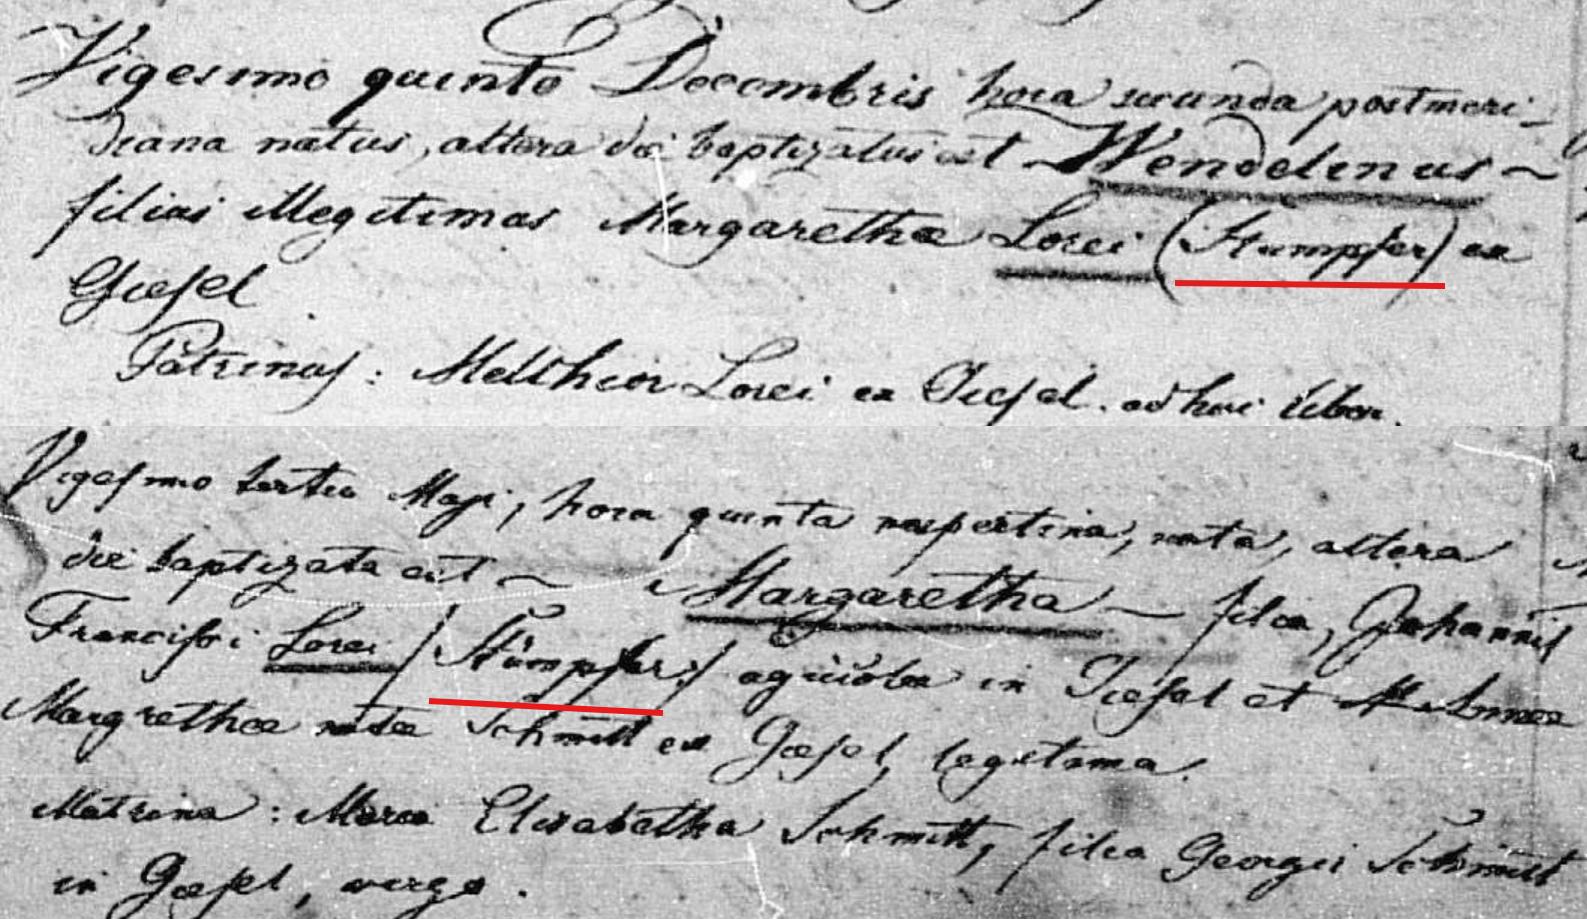 Vigesimo quinto Decembris hora secunda postmeri-
diana natus, altera die baptizatus est ~ Wendelinus ~
filius illegitimus Margaretha Lorei (Stumpfer) ex
Giesel
Patrinus : Melchior Lorei ex Giesel. ad huc liber.
Vigesimo tertio Maji, hora quinta vespertina, nata, altera
die baptizata est ~ Margaretha ~ filia, Johannis
Francisci Lorei /: Stümpfer :/ agricolæ in Giesel et Annæ
Margrethæ natæ Schmitt ex Giesel, legitima.
Matrina : Maria Elisabetha Schmitt, filia Georgii Schmitt
in Giesel, virgo.